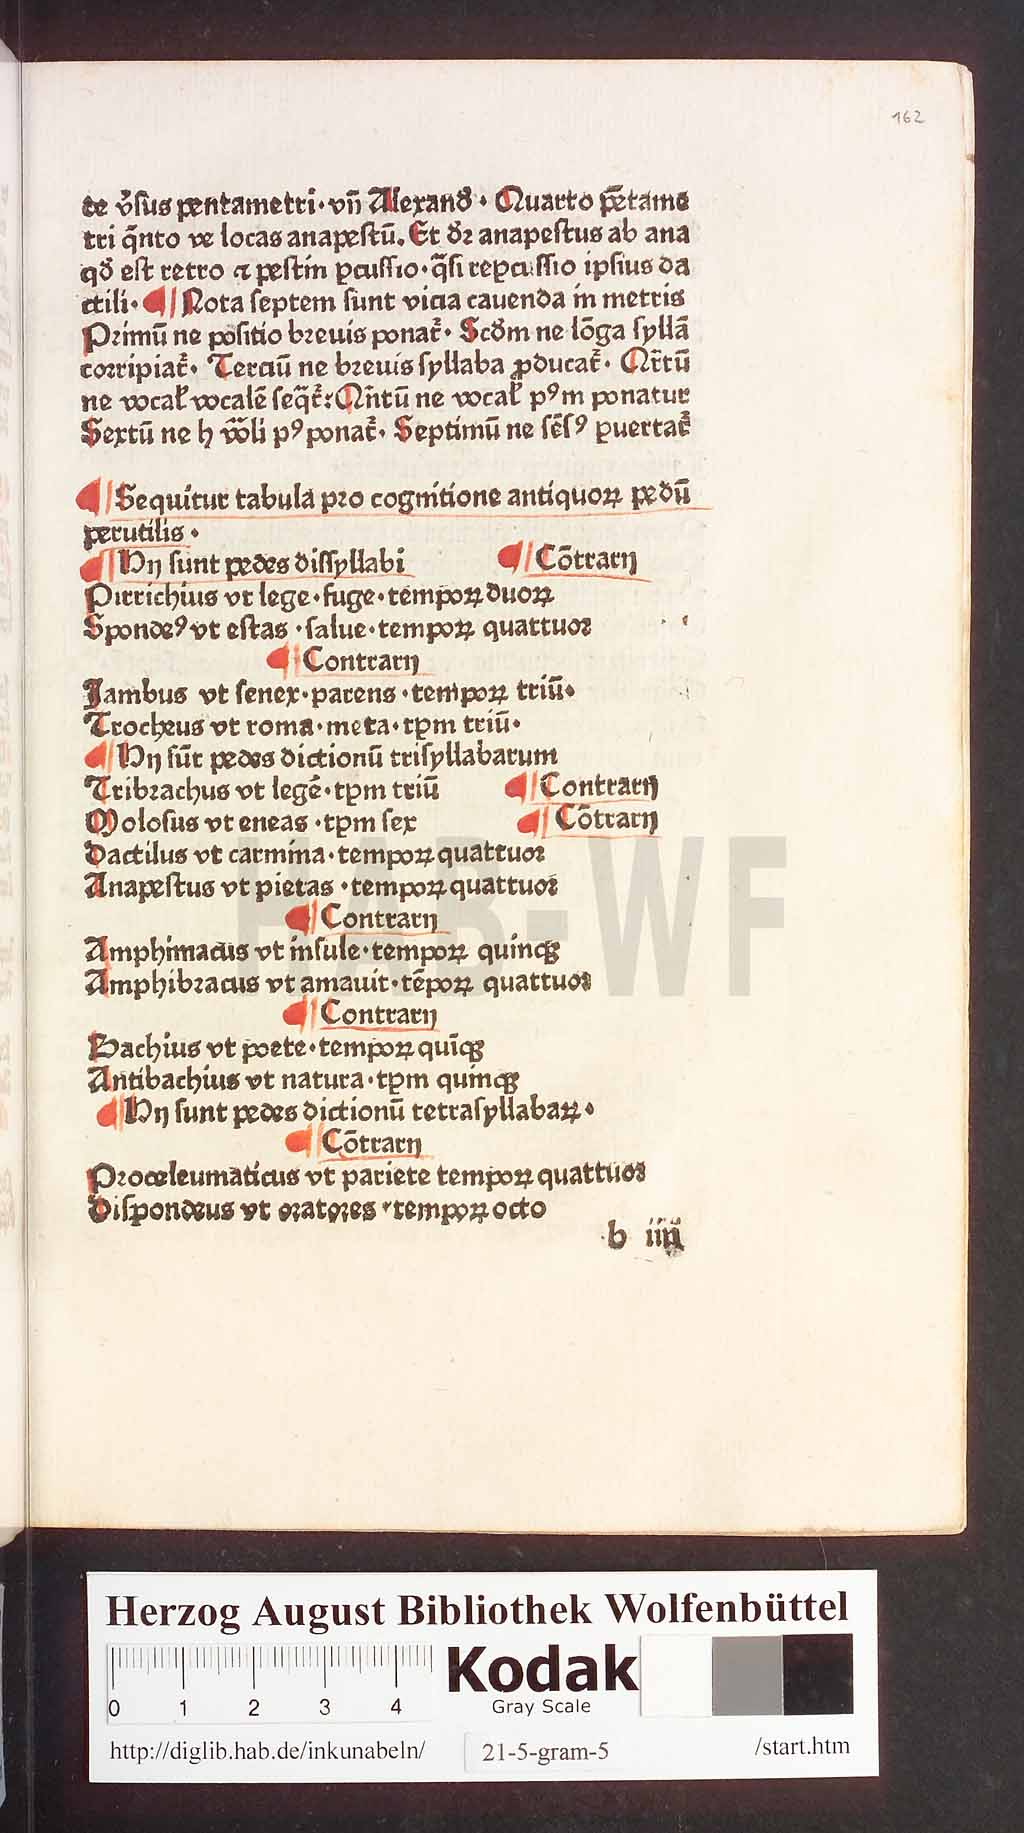 162
te v̓sus pentametri · vn̄ Alexand̕ · Quarto pētame
tri q̄nto ve locas anapestū. Et d̕ꝛ anapestus ab ana
qd̕ est retro ⁊ pestin ꝑcussio · q̄si reꝑcussio ipsius da
ctili · ¶ Nota septem sunt vicia cauenda in metris
Primū ne positio breuis ponat᷑ · Scd̕m ne lōga syllā
corripiat᷑ · Terciū ne breuis syllaba ꝓducat᷑ · Qr̄tū
ne vocał vocalē seq̄t᷑: Qn̄tū ne vocał pꝰm ponatur
Sextū ne h vo̅li pꝰ ponat᷑ · Septimū ne sēsꝰ ꝑuertat᷑
¶ Sequitur tabula pro cognitione antiquoꝝ pedū
perutilis ·
¶ Hij sunt pedes dissyllabi ¶ Cōtrarij
Pirrichius vt lege · fuge · tempoꝝ duoꝝ
Spondeꝰ vt estas · salue · tempoꝝ quattuor
¶ Contrarij
Jambus vt senex · parens · tempoꝝ triū ·
Trocheus vt roma · meta · tꝑm triū ·
¶ Hij sūt pedes dictionū trisyllabarum
Tribrachus vt legē · tꝑm triū ¶ Contrarij
Molosus vt eneas · tꝑm sex ¶ Cōtrarij
Dactilus vt carmina · tempoꝝ quattuor
Anapestus vt pietas · tempoꝝ quattuor
¶ Contrarij
Amphimacus vt insule · tempoꝝ quinqꝫ
Amphibracus vt amauit · tēpoꝝ quattuor
¶ Contrarij
Bachius vt poete · tempoꝝ quīqꝫ
Antibachius vt natura · tꝑm quinqꝫ
¶ Hij sunt pedes dictionū tetrasyllabaꝝ ·
¶ Cōtrarij
Proceleumaticus vt pariete tempoꝝ quattuor
Dispondeus vt oratores · tempoꝝ octo
b iiij
HAB-WF
Herzog August Bibliothek Wolfenbüttel
Kodak
Gray Scale
0 1 2 3 4
http://diglib.hab.de/inkunabeln/ 21-5-gram-5 /start.htm